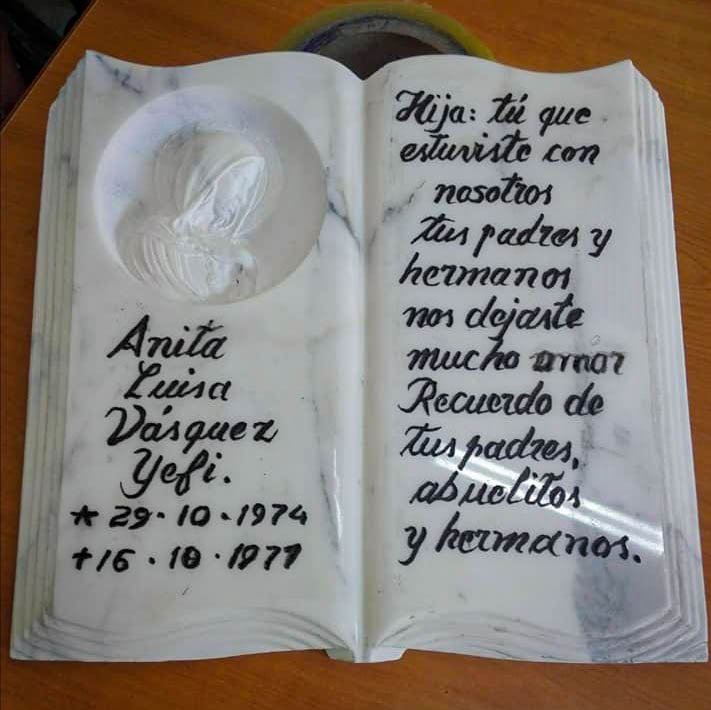 Anita
Luisa
Vásquez
Yefi.
* 29·10·1974
+16·10·1977
Hija: tú que
estuviste con
nosotros
tus padres y
hermanos
nos dejaste
mucho amor
Recuerdo de
tus padres,
abuelitos
y hermanos.